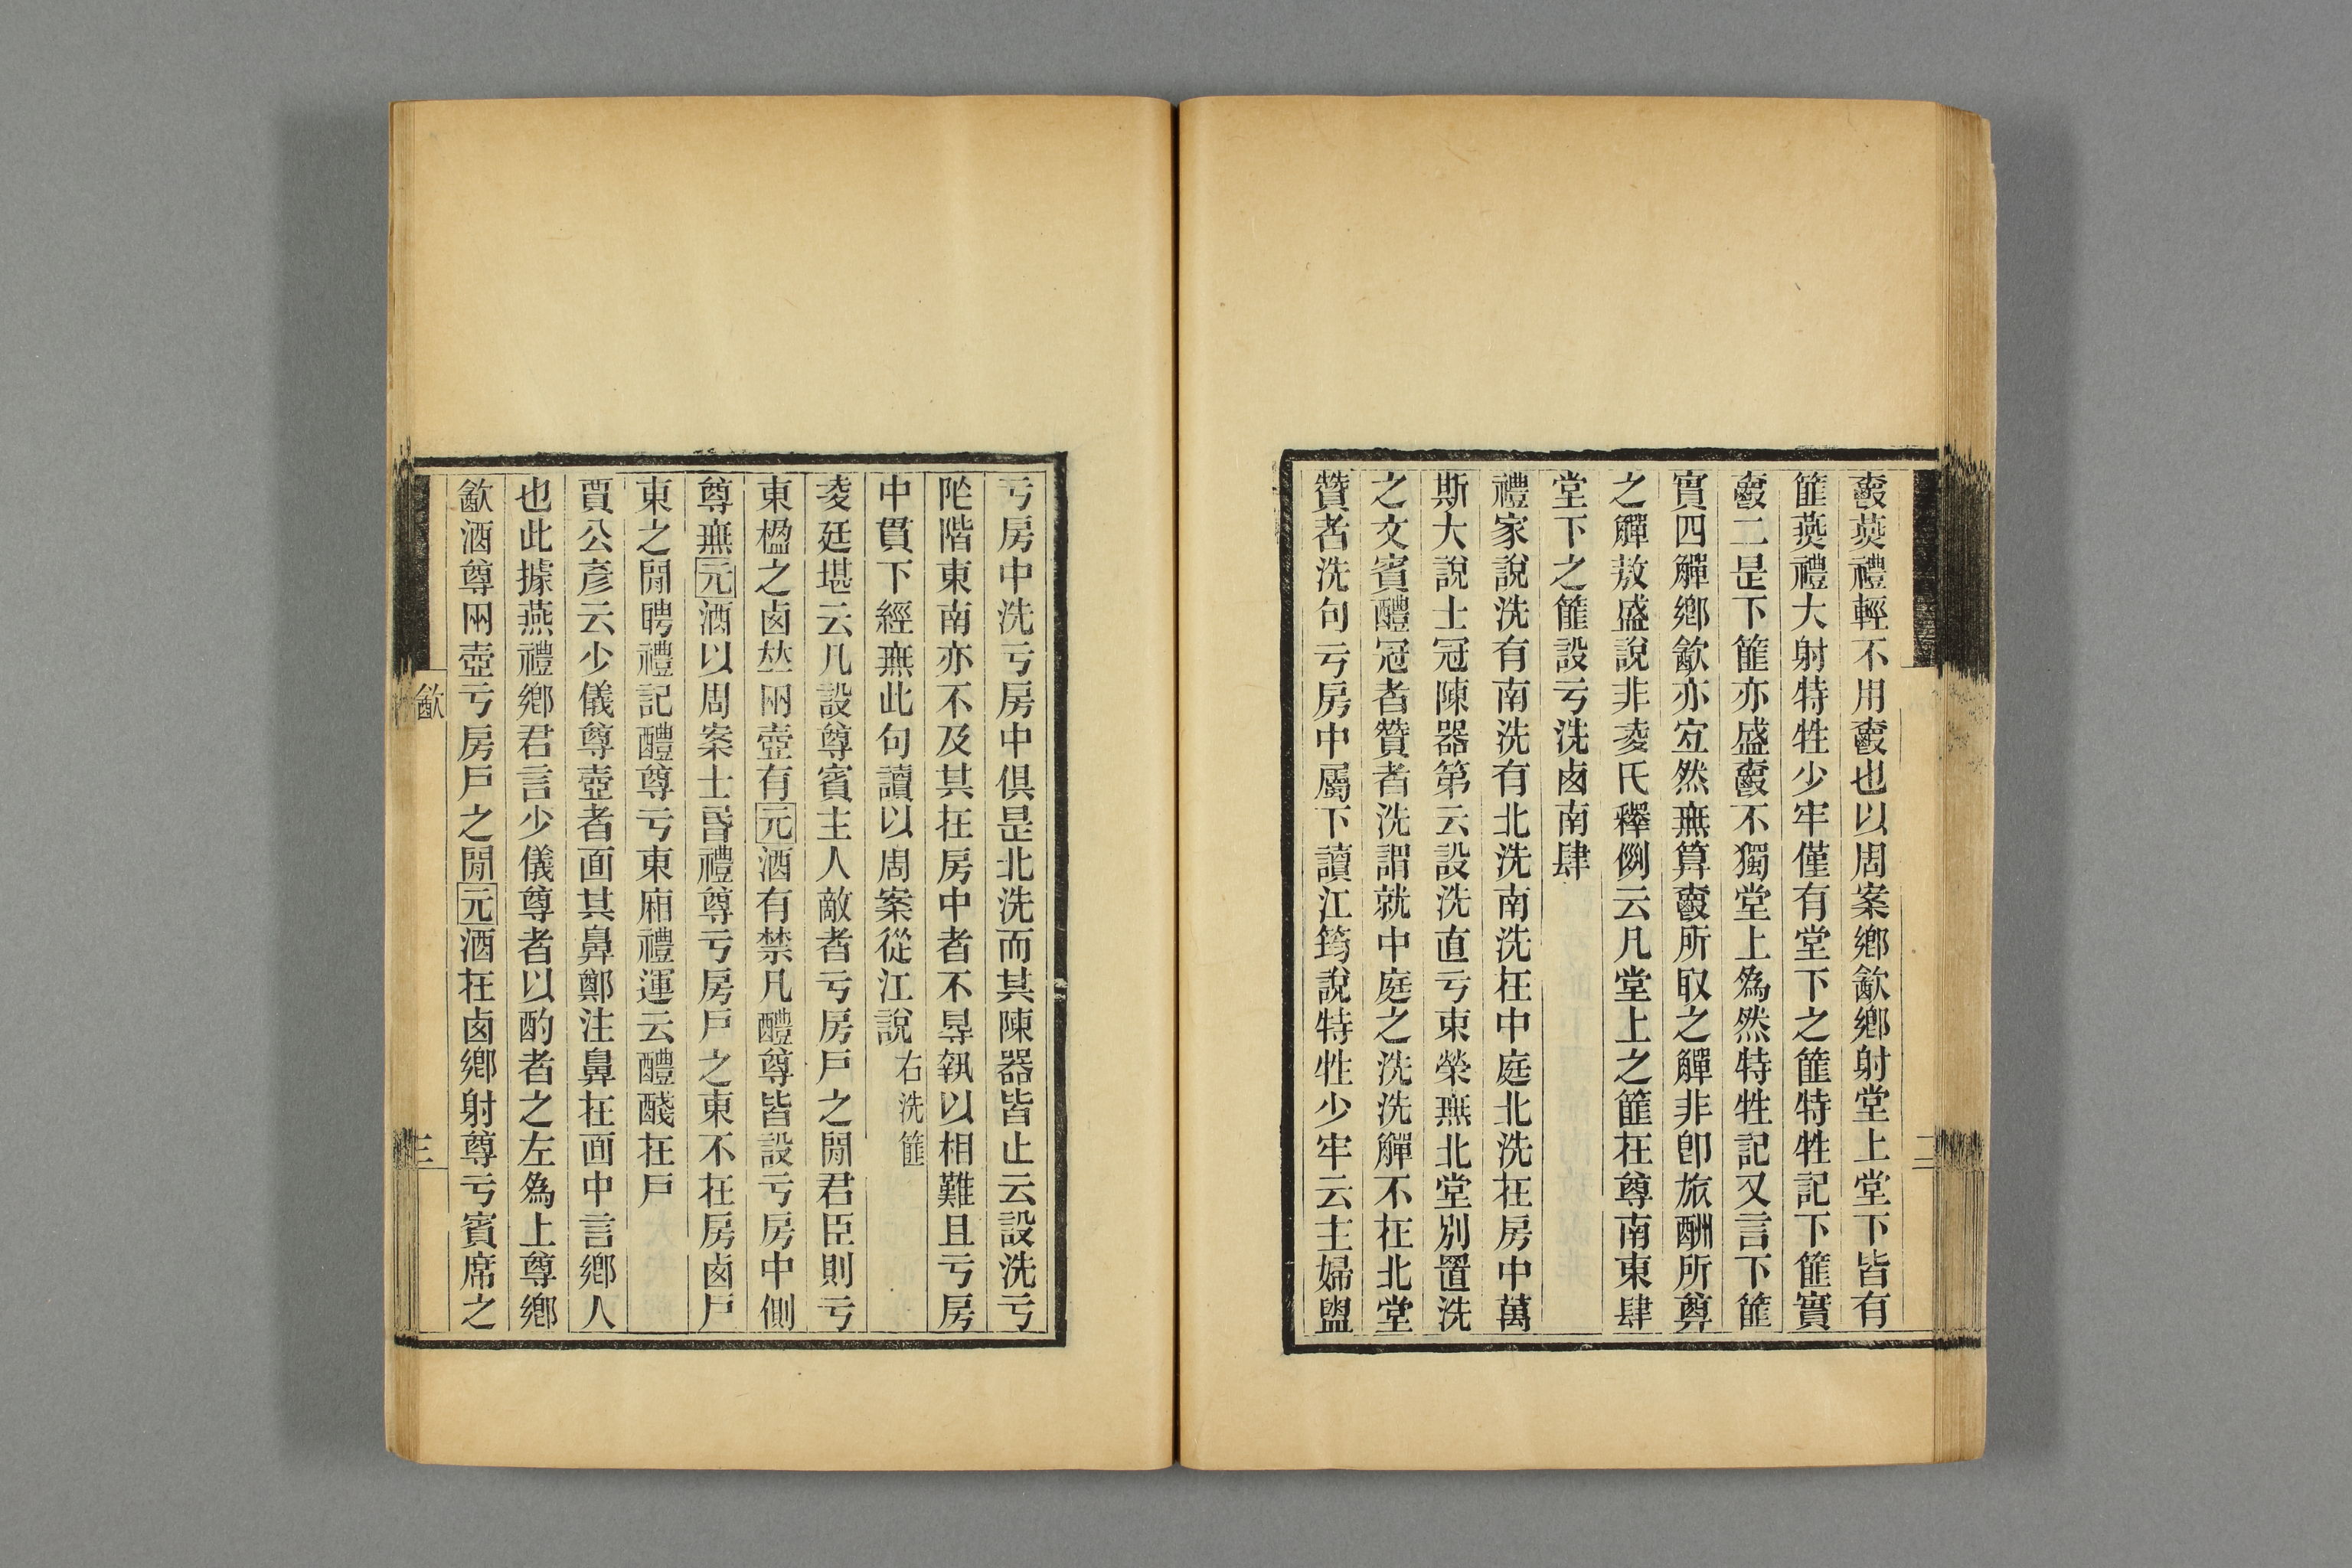 爵燕禮輕不用爵也以周案鄉飮鄉射堂上堂下皆有
篚燕禮大射特牲少牢僅有堂下之篚特牲記下篚實
爵二是下篚亦盛爵不獨堂上爲然特牲記又言下篚
實四觶鄉飮亦宐然無算爵所取之觶非卽旅酬所奠
之觶敖盛說非夌氏釋例云凡堂上之篚在尊南東肆
堂下之篚設亏洗卤南肆
禮家說洗有南洗有北洗南洗在中庭北洗在房中萬
斯大說士冠陳器第云設洗直亏東榮無北堂別置洗
之文賓醴冠者贊者洗謂就中庭之洗洗觶不在北堂
贊者洗句亏房中屬下讀江筠說特牲少牢云主婦盥
亏房中洗亏房中俱是北洗而其陳器皆止云設洗亏
阼階東南亦不及其在房中者不㝵執以相難且亏房
中貫下經無此句讀以周案從江說 右洗篚
夌廷堪云凡設尊賓主人敵者亏房戶之閒君臣則亏
東楹之卤竝兩壺有元酒有禁凡醴尊皆設亏房中側
尊無元酒以周案士昏禮尊亏房戶之東不在房卤戶
東之閒聘禮記醴尊亏東廂禮運云醴醆在戶
賈公彥云少儀尊壺者面其鼻鄭注鼻在面中言鄉人
也此據燕禮鄉君言少儀尊者以酌者之左爲上尊鄉
飮酒尊兩壺亏房戶之閒元酒在卤鄉射尊亏賓席之
飮
三